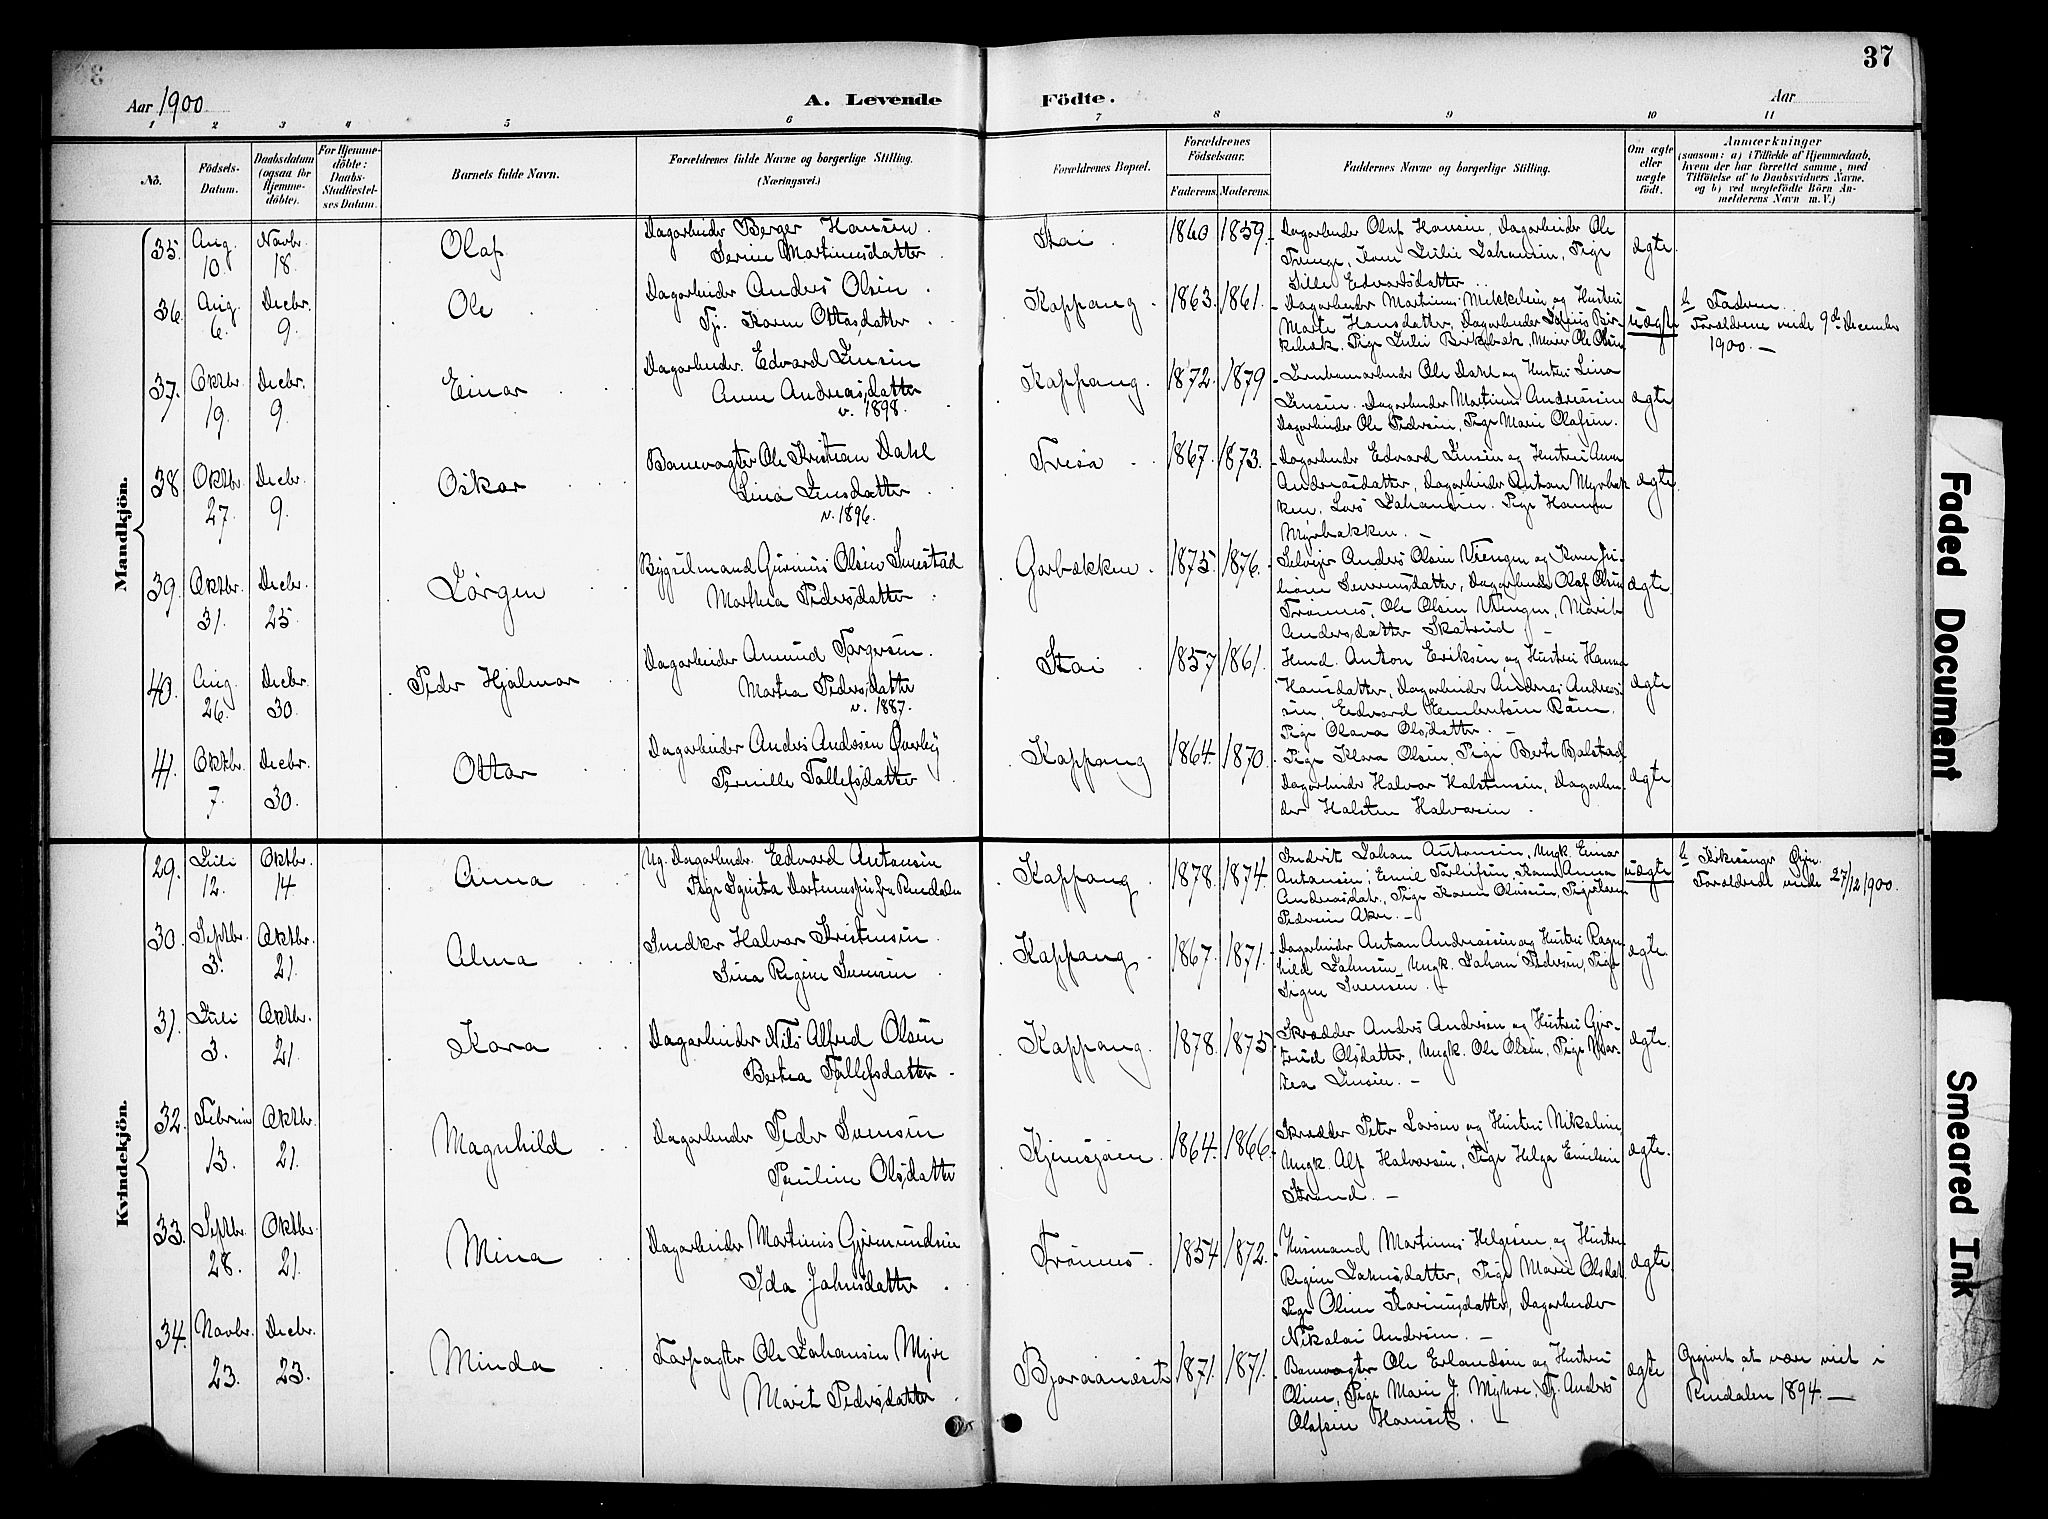 37
Aar 1900
A. Levende Födte.
Aar
1 2 3 4 5 6 7 8 9 10 11
No.
Födsels-Datum.
Daabsdatum (ogsaa for Hjemmedöbte).
For Hjemmedöbte: Daabs-Stadfæstelses Datum.
Barnets fulde Navn.
Forældrenes fulde Navne og borgerlige Stilling.
(Næringsvei.)
Forældrenes Bopæl.
Forældrenes Födselsaar.
Faderens. Moderens.
Faddernes Navne og borgerlige Stilling.
Om ægte eller uægte födt.
Anmærkninger
(saasom: a) i Tilfælde af Hjemmedaab, hvem der har forrettet samme, med Tilföielse af to Daabsvidners Navne. og b) ved uægtefödte Börn Anmelderens Navn m. V.)
Mandkjön.
35. Aug. 10 Novbr. 18. Olaf
Dagarbeider Berger Hansen
Serine Martinusdatter
Stai 1860 1859
Dagarbeider Olaf Hansen, Dagarbeider Ole
ægte
36. Aug. 6 Decbr. 9. Ole
Dagarbeider Anders Olsen
Karen Ottosdatter
Koppang 1863. 1861.
Dagarbeider Martinus Mikkelsen og Hustru
Marte Hansdatter, Dagarbeider
uægte
b Faderen
Forældrene viede 9de December
1900.
37. Oktbr. 19. Decbr. 9. Einar
Dagarbeider Edvard Jensen
Anne Andreasdatter
v. 1898.
Koppang. 1872. 1879
Jernbanearbeider Ole Dahl og Hustru Lina
Jensen. Dagarbeider Martinus Andreassen
Dagarbeider Ole Pedersen, Pige Marie Olafsen.
ægte
38 Oktbr. 27. Decbr. 9. Oskar
Banevogter Ole Kristian Dahl
Lina Jensdatter
v. 1896.
Tresa 1867. 1873.
Dagarbeider Edvard Jensen og Hustru Anne
Andreasdatter, Dagarbeider Anton Myrbak
ken. Lars Johansen. Pige Hanna
Myrbakken.
ægte
39. Oktbr. 31. Decbr. 25. Jörgen
Bygselmand Gunnus Olsen
Marthea Pedersdatter
Garbækken 1875. 1876.
Selveier Anders Olsen Viengen og Kone
Dagarbeider Olaf Olsen
Trönnes, Ole Olsen Viengen, Marit
Andersdatter Skatrud
ægte
40. Aug. 26. Decbr. 30. Peder Hjalmar
Dagarbeider Amund Torgersen
Martea Pedersdatter
v. 1887.
Stai 1857 1861.
Anton Eriksen og Hustru Hanna
Hansdatter, Dagarbeider Andreas Andreas
sen, Edvard
Pige Olava Olsdatter.
ægte
41. Oktbr. 7. Decbr. 30. Ottar
Dagarbeider Anders Andersen Överby
Pernille Tollefsdatter
Koppang 1864. 1870.
Pige Klara Olsen, Pige Berte Bolstad
Dagarbeider Halvor Halstensen, Dagarbei
der Halsten Halvorsen
ægte
Kvindekjön.
29. Juli 12. Oktbr. 14 Anna
Ug. Dagarbeider Edvard Antonsen
Pige fra Rendalen
Koppang 1878. 1874.
Johan Antonsen, Ungk. Einar
Antonsen, Emil Kone Anna
Andreasdatr., Pige Karen Olausen, Pige
Pedersen Aker.
uægte
b Kirkesanger
Forældrene viede 27/12 1900.
30. Septbr. 3. Oktbr. 21. Alma
Snedker Halvor Kristensen
Lina Regine Svensen
Koppang 1867. 1871.
Dagarbeider Anton Andreassen og Hustru Ragn
hild Johnsen, Ungk. Johan Pedersen, Pige
Signe Svensen.
ægte.
31. Juli 3. Oktbr. 21. Kora
Dagarbeider Nils Alfred Olsen
Bertea Tollefsdatter
Koppang. 1878. 1875
Skrædder Anders Andersen og Hustru Gjer-
trud Olsdatter, Ungk. Ole Olsen, Pige Mar-
tea Jensen.
ægte.
32. Februar 13. Oktbr. 21. Magnhild
Dagarbeider Peder Svensen
Pauline Olsdatter
Kjemsjöen. 1864. 1866.
Skrædder Peter Larsen og Hustru Nikoline,
Ungk. Alf Halvorsen, Pige Helga Emilsen
Strand.
ægte.
33. Septbr. 28. Oktbr. 21. Mina
Dagarbeider Martinus Gjermundsen
Ida Johnsdatter
Trönnes. 1854 1872.
Husmand Martinus Helgesen og Hustru
Regine Johnsdatter, Pige Marie Olsdat.
Pige Oline Karinusdatter, Dagarbeider
Nikolai Andersen.
ægte.
34. Novbr. 23. Decbr. 23. Minda
Forpagter Ole Johansen Myre
Marit Pedersdatter
Bjoraanæset 1871. 1871.
Banevogter Ole Erlandsen og Hustru
Oline, Pige Marie J. Myhre, Tj. Anders
Olafsen Harnset.
ægte
Opgivet at være viet i
Rendalen 1894.
Faded Document
Smeared Ink